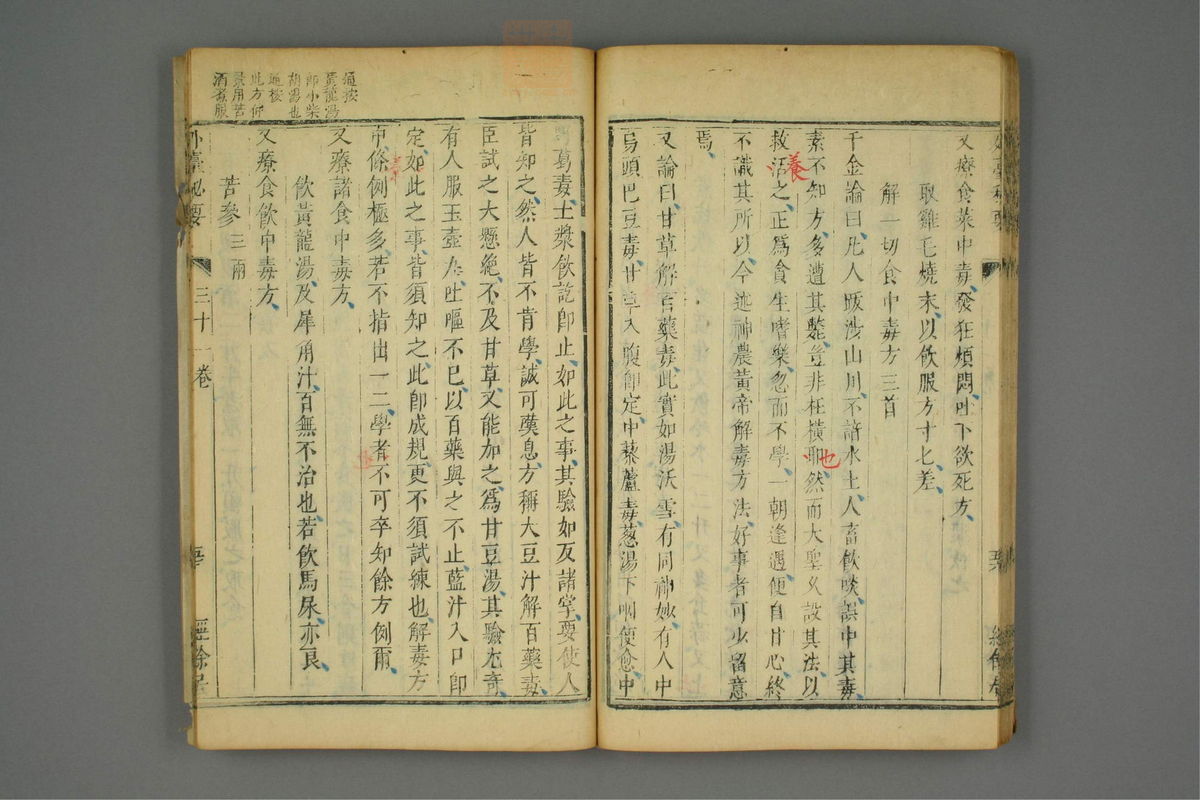 又療食菜中毒、發狂煩悶、吐下欲死方、
取雞毛燒末、以飲服方寸匕、差、
解一切食中毒方三首
千金論曰、凡人跋涉山川、不諳水土、人畜飲啖、誤中其毒、
素不知方、多遭其斃、豈非枉橫耶、然而大聖久設其法、以
養
也
救活之、正為貪生嗜樂、忽而不學、一朝逢遇、便自甘心、終
不識其所以、今述神農黃帝解毒方法、好事者可少留意
焉、
又論曰、甘草解百藥毒、此實如湯沃雪、有同神妙、有人中
烏頭巴豆毒、甘草入腹即定、中藜蘆毒、葱湯下咽便愈、中
葛毒、土漿飲訖即止、如此之事、其驗如反諸掌、要使人
皆知之、然人皆不肯學、誠可歎息、方稱大豆汁解百藥毒
臣試之大懸絕、不及甘草、又能加之、為甘豆湯、其驗尤奇
有人服玉壺丸、吐嘔不已、以百藥與之不止、藍汁入口即
定、如此之事、皆須知之、此即成規、更不須試練也、解毒方
中、條例極多、若不指出一二、學者不可卒知、餘方例爾、
又療諸食中毒方、
飲黃龍湯、及犀角汁、百無不治也、若飲馬尿亦良、
又療食飲中毒方、
苦參三兩
通按
黃龍湯
即小柴
胡湯也
通按
此方仰
景用苦
酒煮服
外臺祕要
三十一卷
經餘居